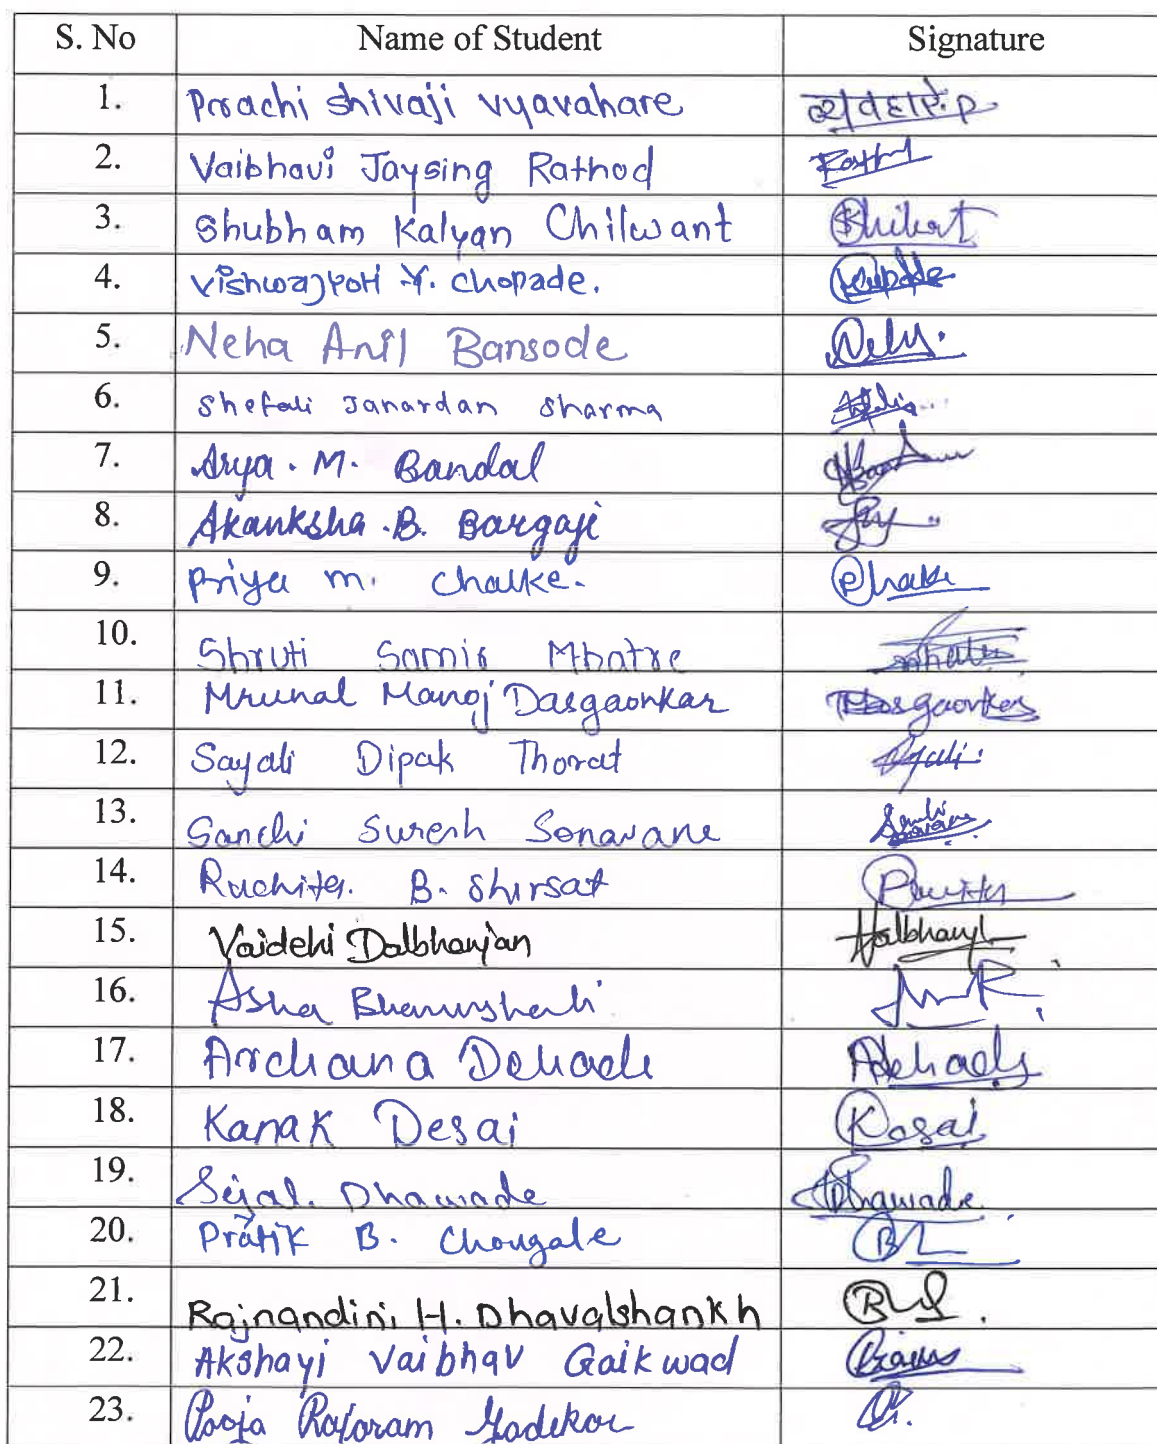 S. No Name of Student Signature
1. Prachi Shivaji Vyavahare व्यवहारे.P
2. Vaibhavi Jaysing Rathod
3. Shubham Kalyan Chilwant
4. Vishwajyoti Y. Chopade.
5. Neha Anil Bansode
6. Shefali Janardan Sharma
7. Arya. M. Bandal
8. Akanksha. B. Bargaje
9. Priya m. Chalke. Chalke
10. Shruti Samir Mhatre Mhatre
11. Mrunal Manoj Dasgaonkar Dasgaonkar
12. Sayali Dipak Thorat
13. Sanchi Suresh Sonavane
14. Ruchita. B. Shirsat
15. Vaidehi Dalbhanjan
16. Asha Bhanushali
17. Archana Dehade ADehade
18. Kanak Desai
19. Sejal. Dhawade Dhawade
20. Pratik B. Chougale
21. Rajnandini H. Dhavalshankh
22. Akshayi Vaibhav Gaikwad
23. Pooja Rajaram Gadekar